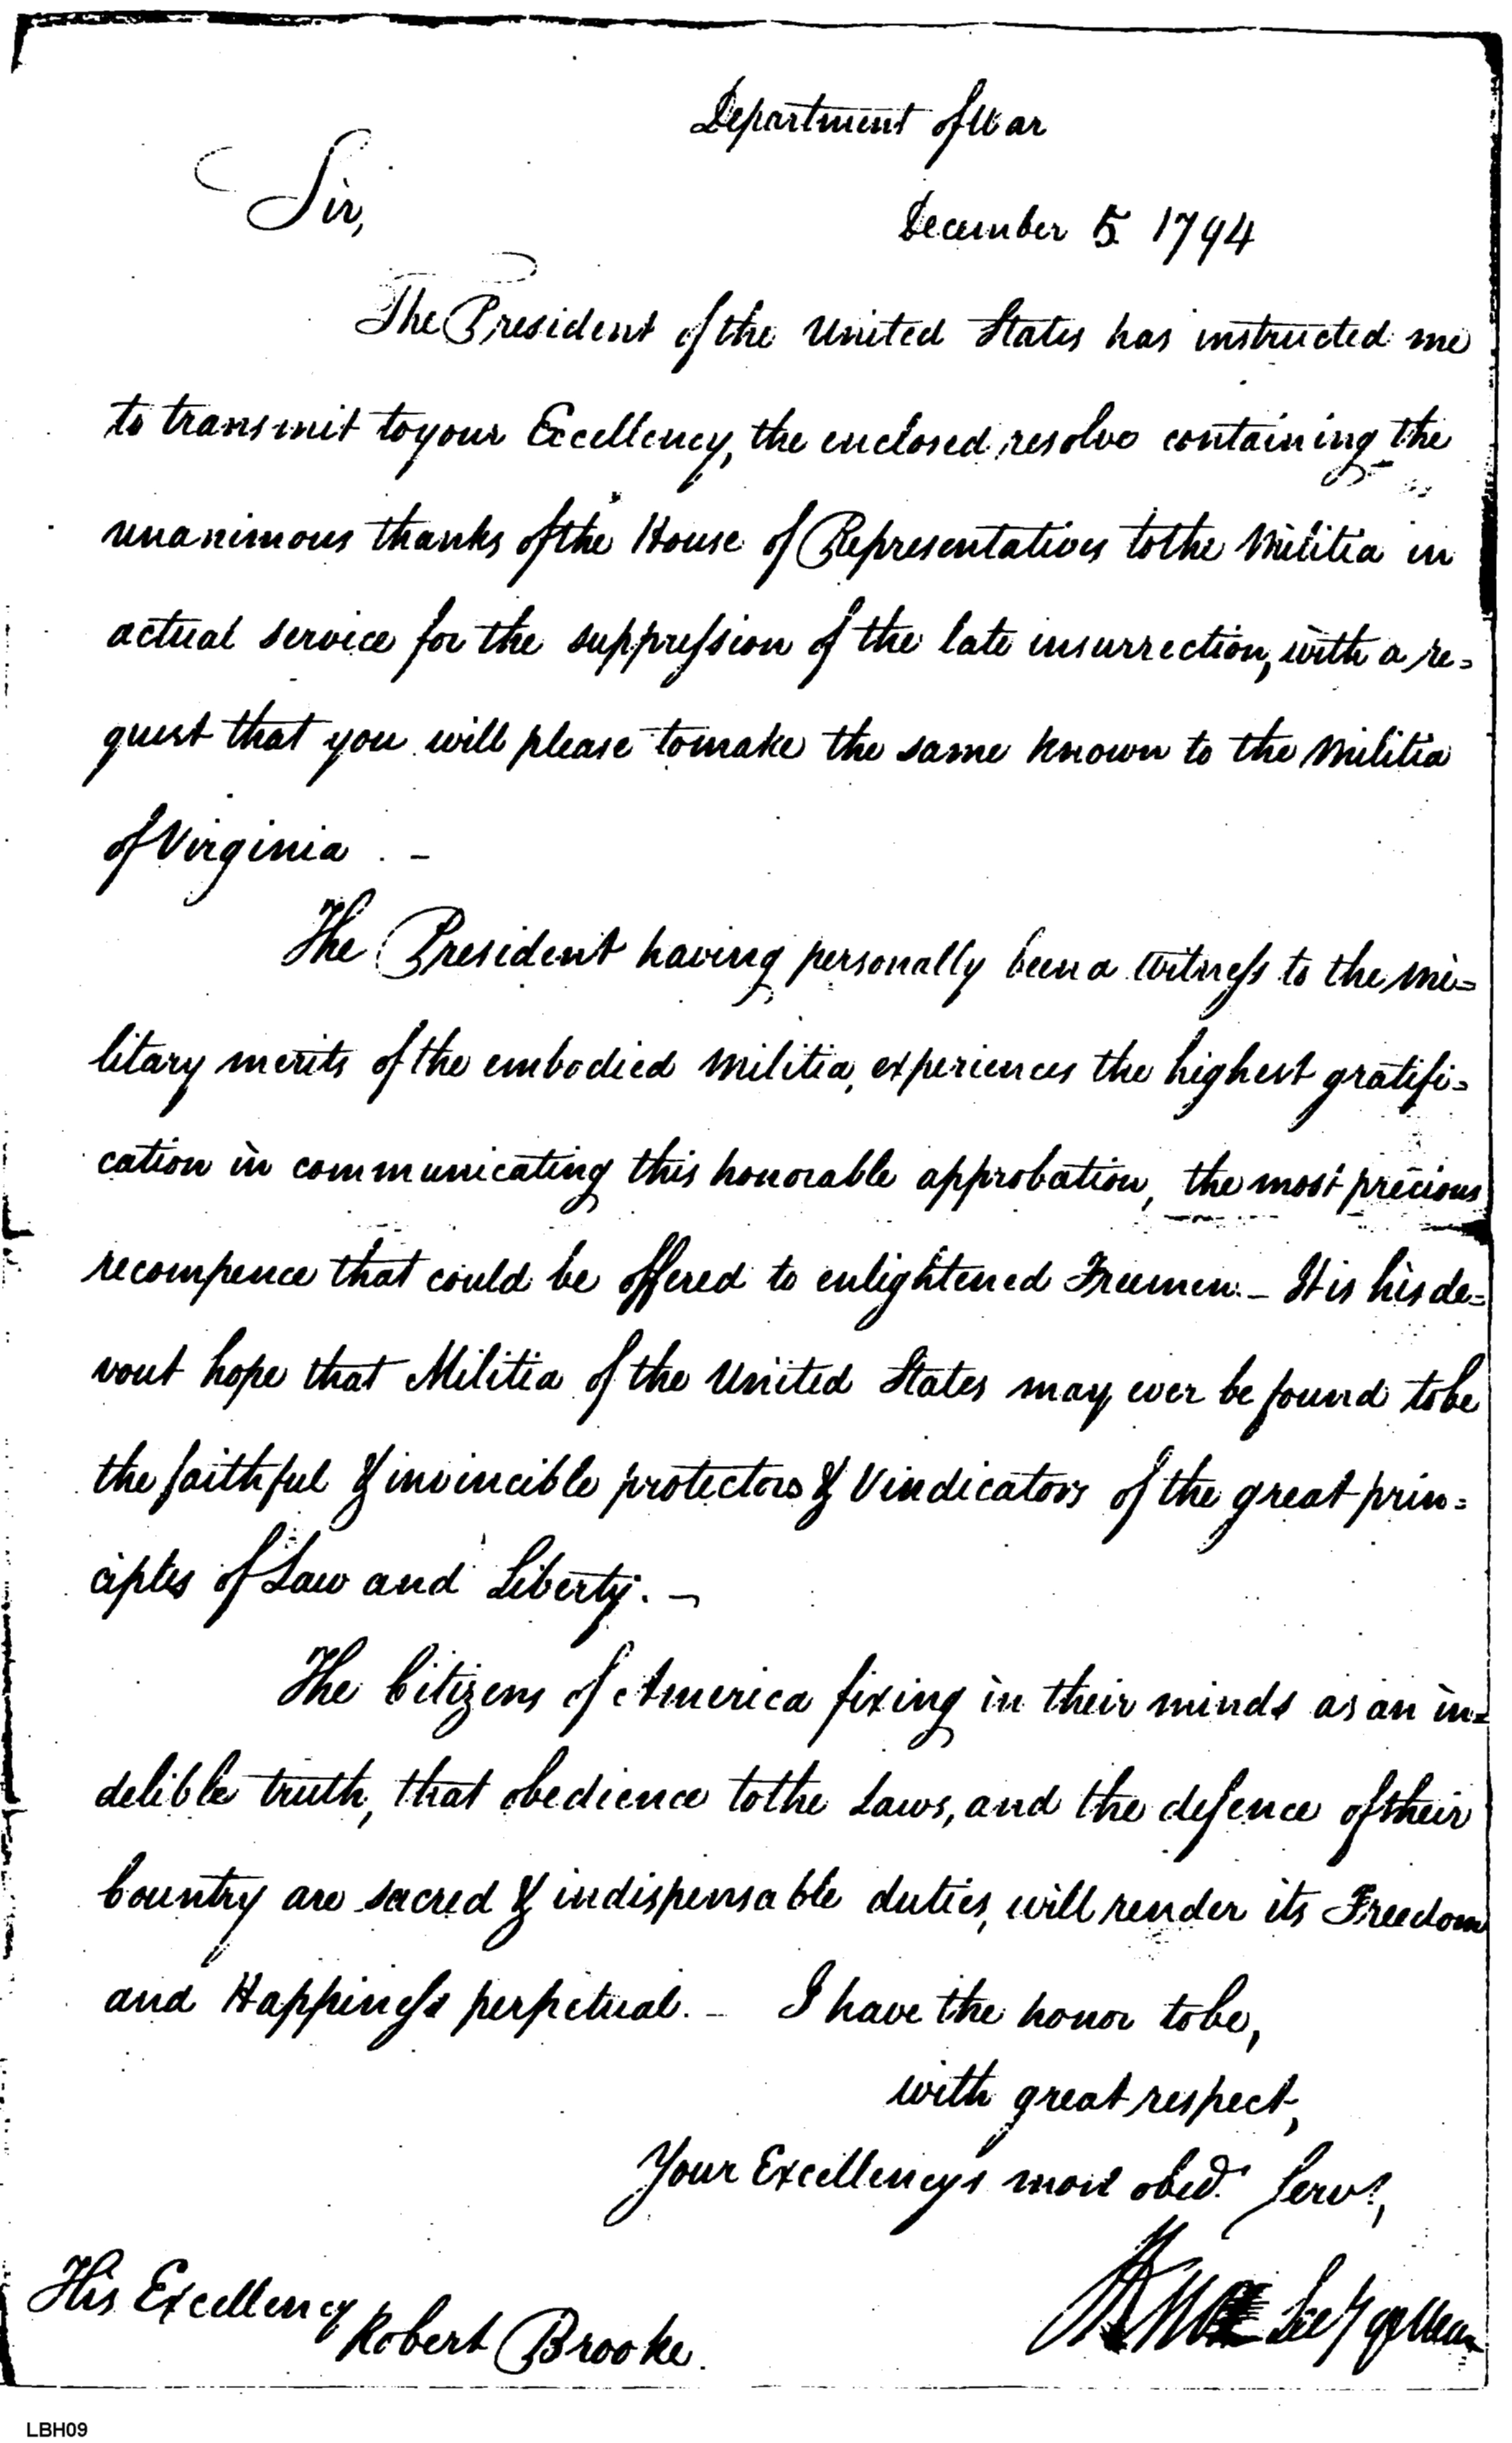 Department of War
Sir,
December 5 1794
The President of the United States has instructed me
to transmit to your Excellency, the enclosed resolve containing the
unanimous thanks of the House of Representatives to the Militia in
actual service for the suppression of the late insurrection, with a re=
quest that you will please to make the same known to the Militia
of Virginia. -
The President having personally been a witness to the mi=
litary merits of the embodied Militia, experiences the highest gratifi=
cation in communicating this honorable approbation, the most precious
recompence that could be offered to enlightened Freemen. - It is his de=
vout hope that Militia of the United States may ever be found to be
the faithful & invincible protectors & Vindicators of the great prin=
ciples of Law and Liberty. -
The Citizens of America fixing in their minds as an in=
delible truth, that obedience to the Laws, and the defence of their
Country are sacred & indispensable duties, will render its Freedom
and Happiness perpetual. - I have the honor to be,
with great respect,
Your Excellencys most obed. Serv.,
Secy of War
His Excellency
Robert Brooke.
LBH09